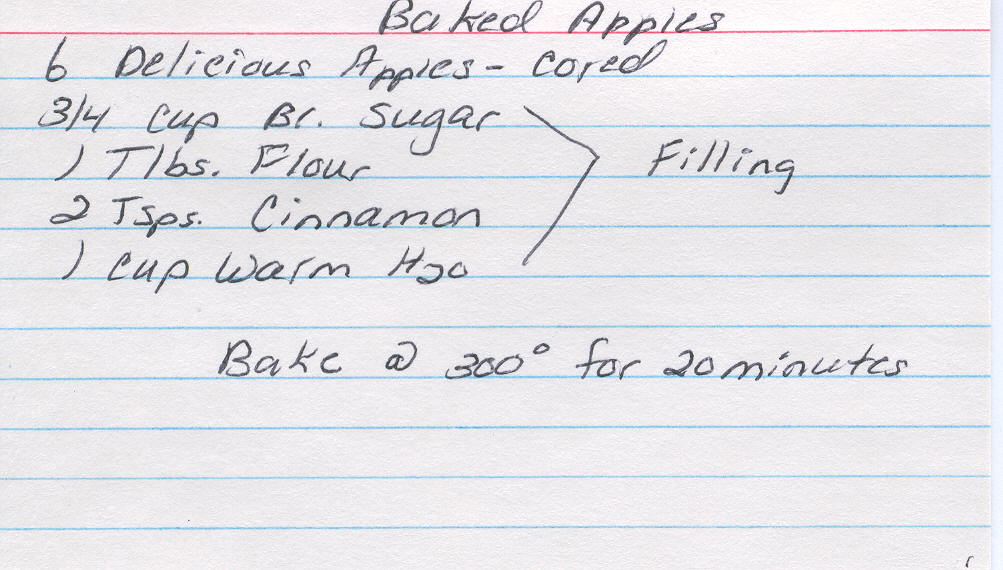 Baked Apples
6 Delicious Apples - Cored
3/4 Cup Br. Sugar
1 Tlbs. Flour
Filling
2 Tsps. Cinnamon
1 Cup Warm H2O
Bake @ 300° for 20 minutes